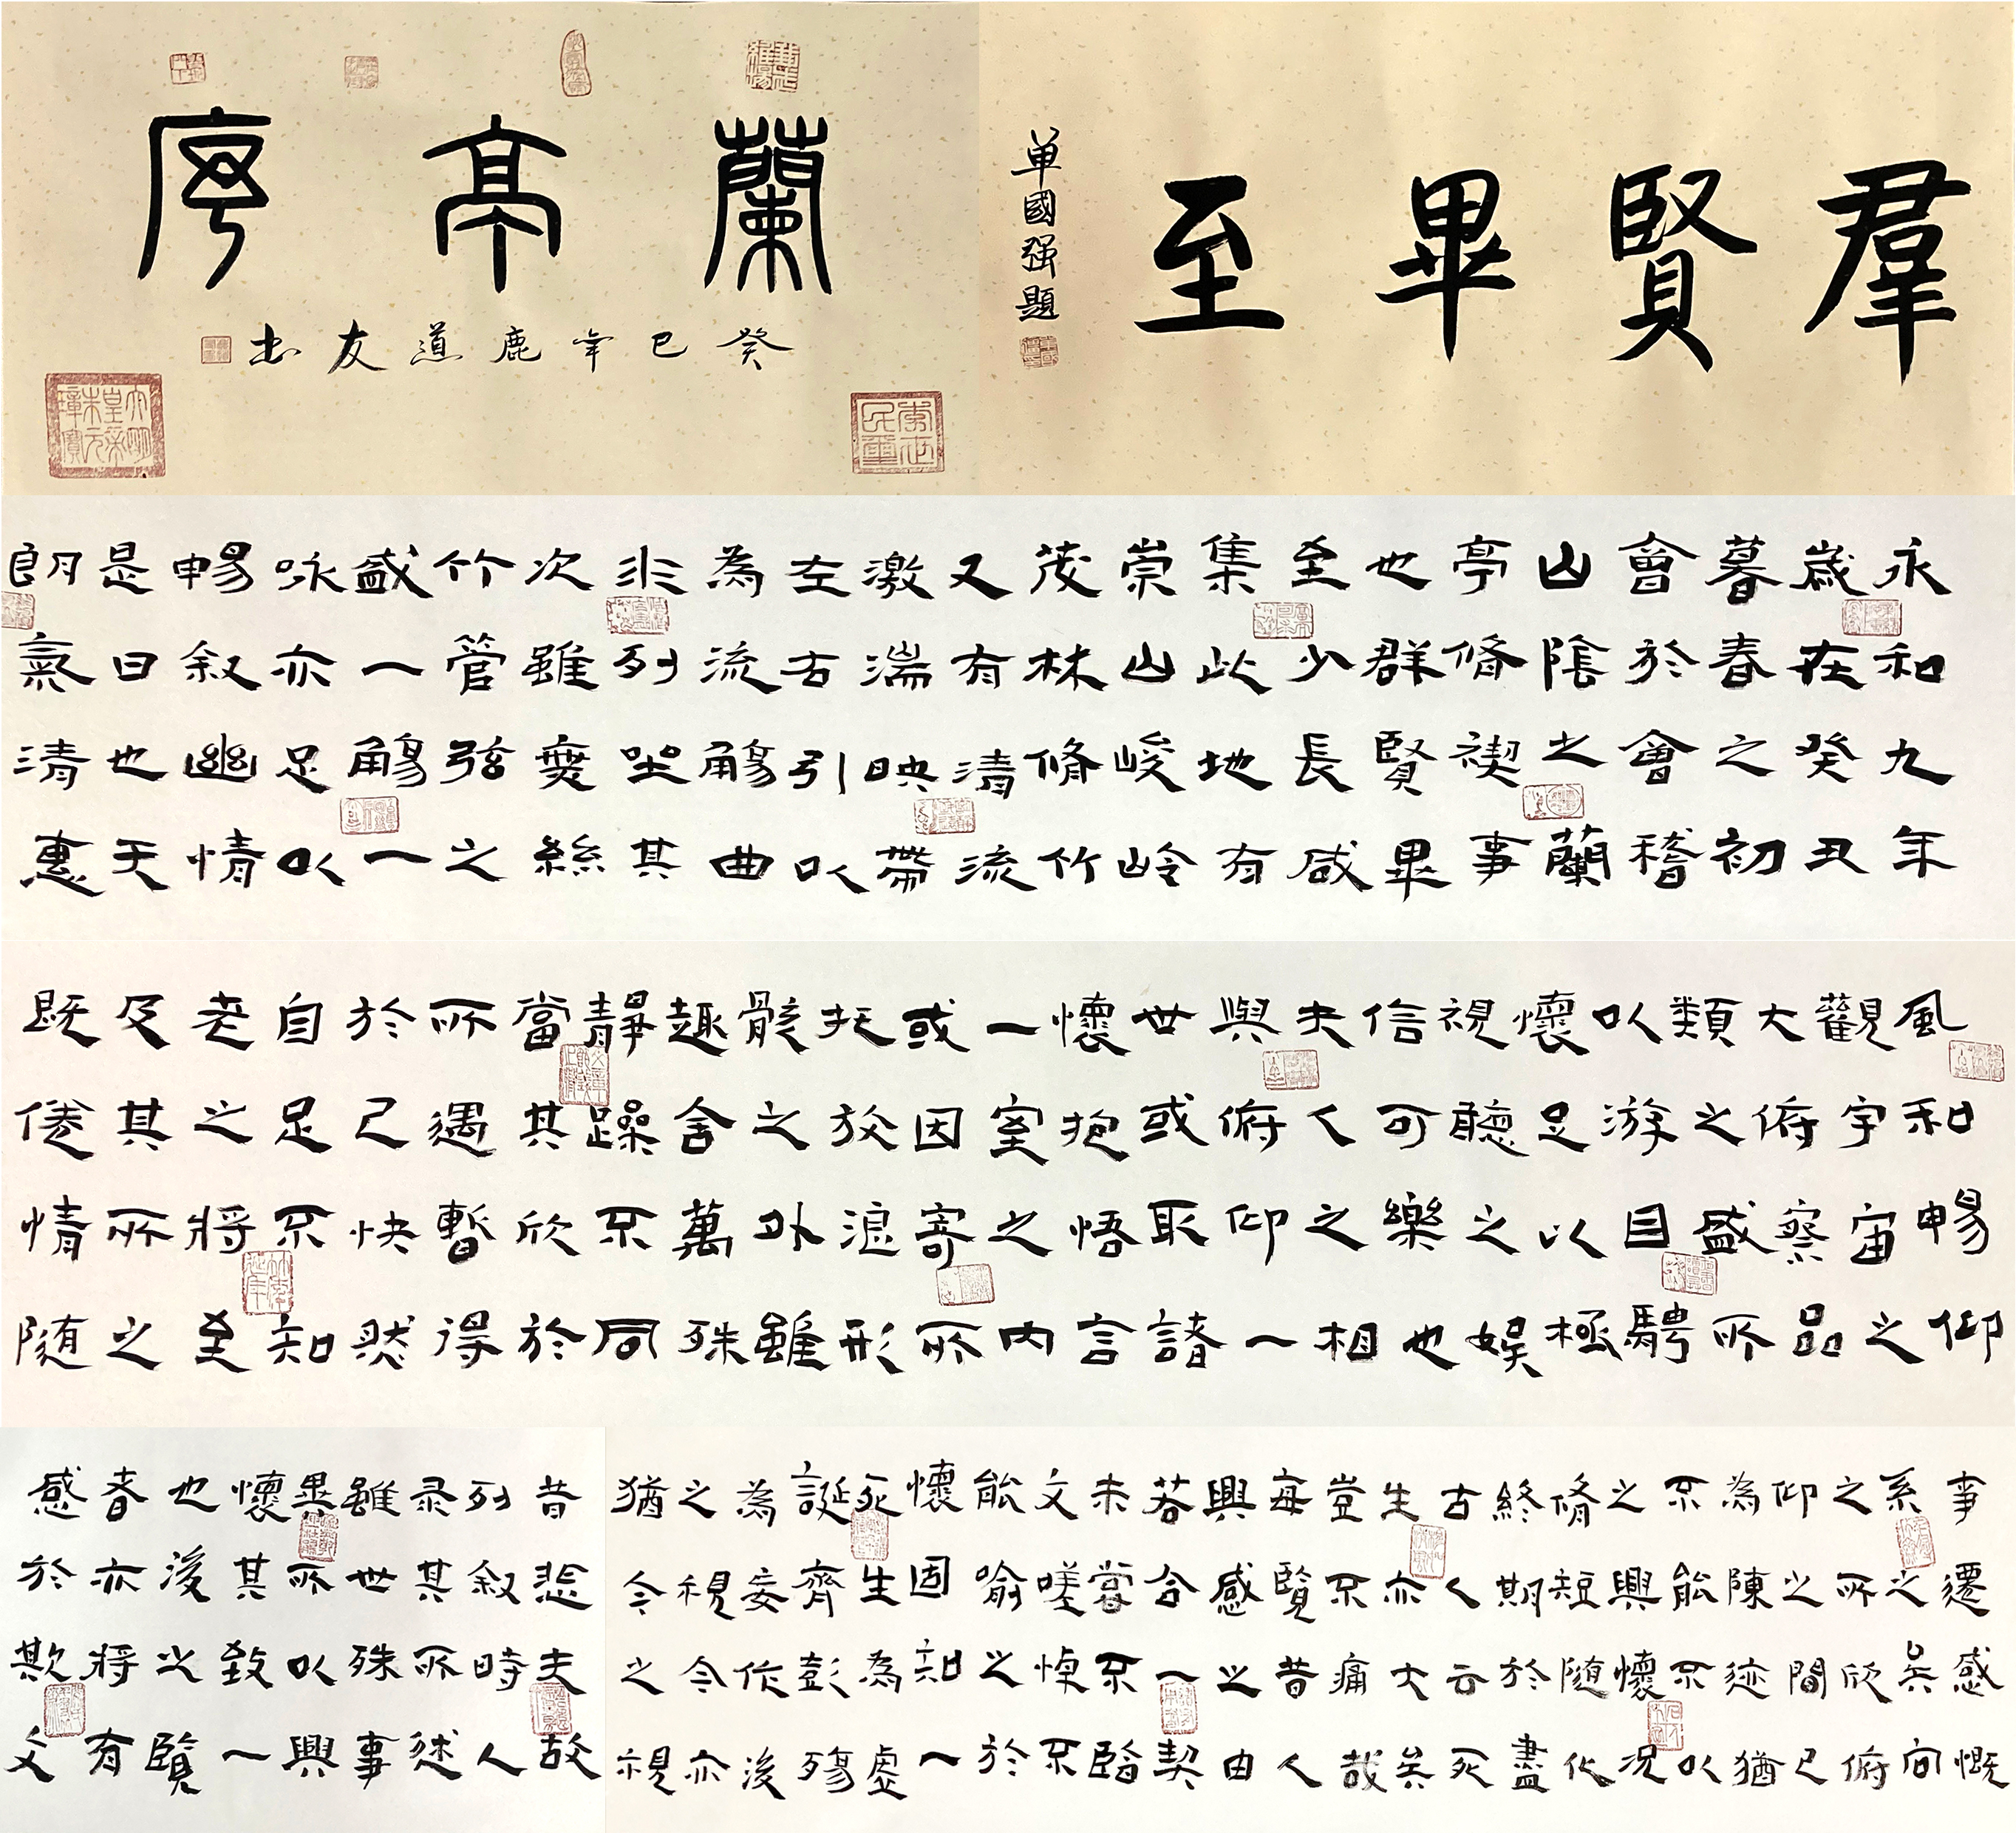 蘭亭序
癸巳年鹿道友书
羣賢畢至
单國强題
永和九年
歲在癸丑
暮春之初
會於會稽
山陰之蘭
亭脩禊事
也群賢畢
至少長咸
集此地有
崇山峻岭
茂林脩竹
又有清流
激湍映帶
左右引以
為流觴曲
水列坐其
次雖無絲
竹管弦之
盛一觴一
咏亦足以
暢叙幽情
是日也天
朗氣清惠
風和暢仰
觀宇宙之
大俯察品
類之盛所
以游目騁
懷足以極
視聽之娛
信可樂也
夫人之相
與俯仰一
世或取諸
懷抱悟言
一室之內
或因寄所
托放浪形
骸之外雖
趣舍萬殊
靜躁不同
當其欣於
所遇暫得
於己快然
自足不知
老之將至
及其所之
既倦情随
事遷感慨
系之矣向
之所欣俯
仰之間已
為陳迹猶
不能不以
之興懷况
脩短随化
終期於盡
古人云死
生亦大矣
豈不痛哉
每覽昔人
興感之由
若合一契
未嘗不臨
文嗟悼不
能喻之於
懷固知一
死生為虛
誕齊彭殤
為妄作後
之視今亦
猶今之視
昔悲夫故
列叙時人
录其所述
雖世殊事
異所以興
懷其致一
也後之覽
者亦將有
感於斯文